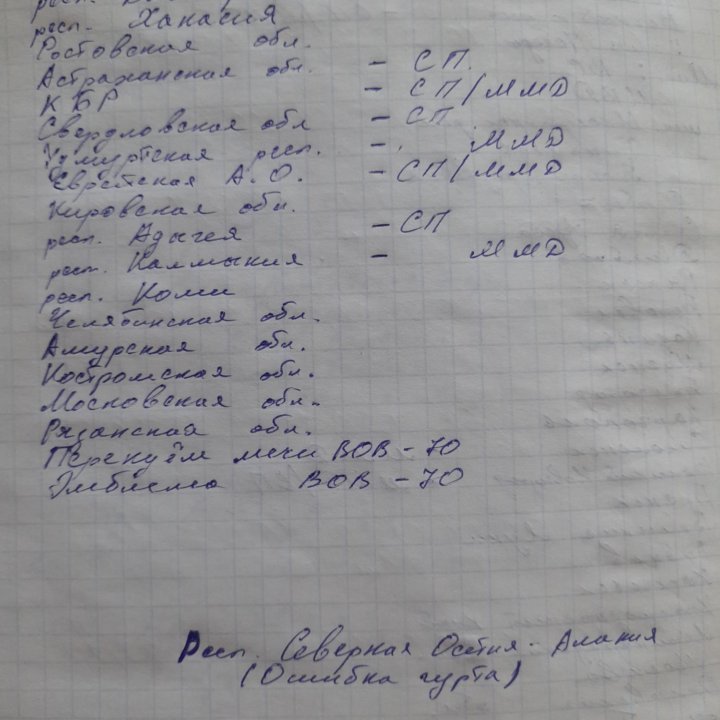 респ.
респ. Хакасия
Ростовская обл.
Астраханская обл. - СП.
КБР - СП/ММД
Свердловская обл - СП
Удмуртская респ. - ММД
Еврейская А.О. - СП/ММД
Кировская обл.
респ. Адыгея - СП
респ. Калмыкия - ММД
респ. Коми
Челябинская обл.
Амурская обл.
Костромская обл.
Московская обл.
Рязанская обл.
Перекуём мечи ВОВ-70
Эмблема ВОВ-70
Респ. Северная Осетия-Алания
(Ошибка гурта)